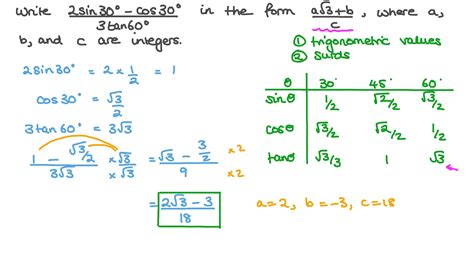 Write (2sin30° - cos30°)/(3tan60°) in the form (a√3+b)/c, where a,
b, and c are integers.
① trigonometric values
② surds
2sin30° = 2 × 1/2 = 1
cos30° = √3/2
3tan60° = 3√3
(1 - √3/2)/(3√3) × √3/√3 = (√3 - 3/2)/9 ×2 ×2
= (2√3 - 3)/18
a=2, b=-3, c=18
θ 30° 45° 60°
sinθ 1/2 √2/2 √3/2
cosθ √3/2 √2/2 1/2
tanθ √3/3 1 √3